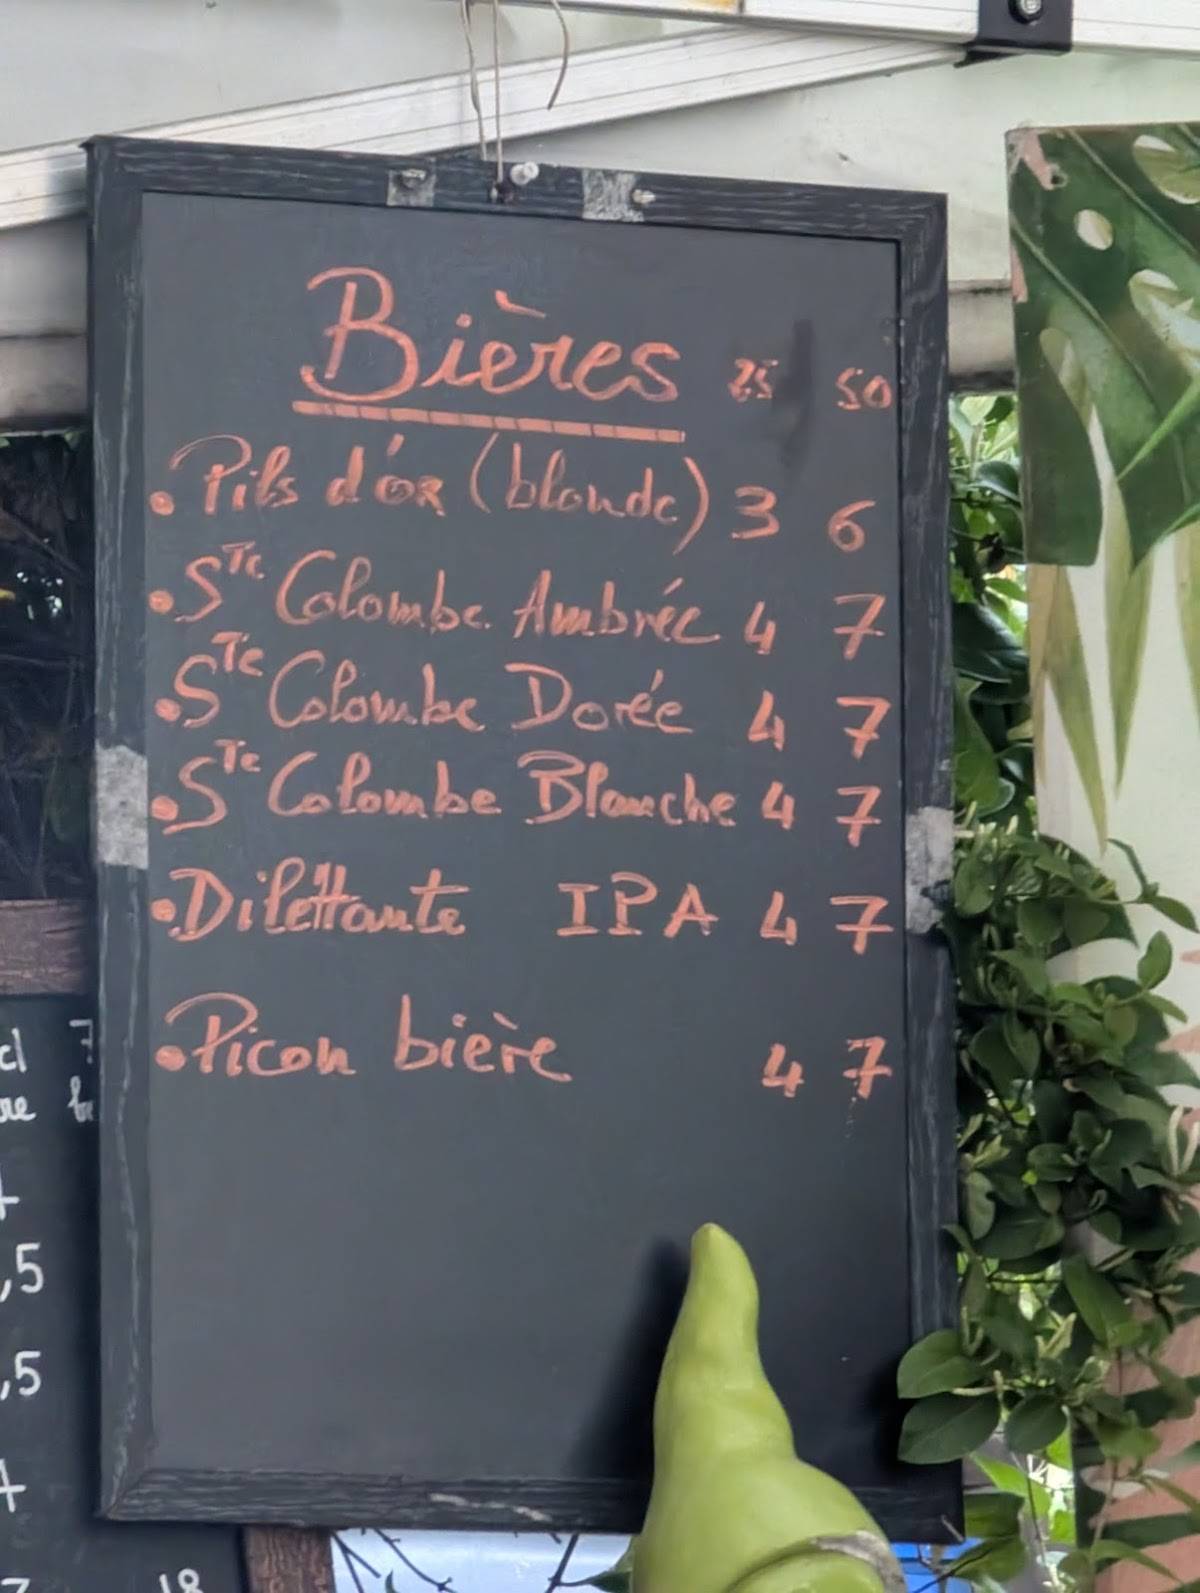 Bières 25 50
• Pils d'or (blonde) 3 6
• Ste Colombe Ambrée 4 7
• Ste Colombe Dorée 4 7
• Ste Colombe Blanche 4 7
• Dilettante IPA 4 7
• Picon bière 4 7
cl 7
,5
,5
18